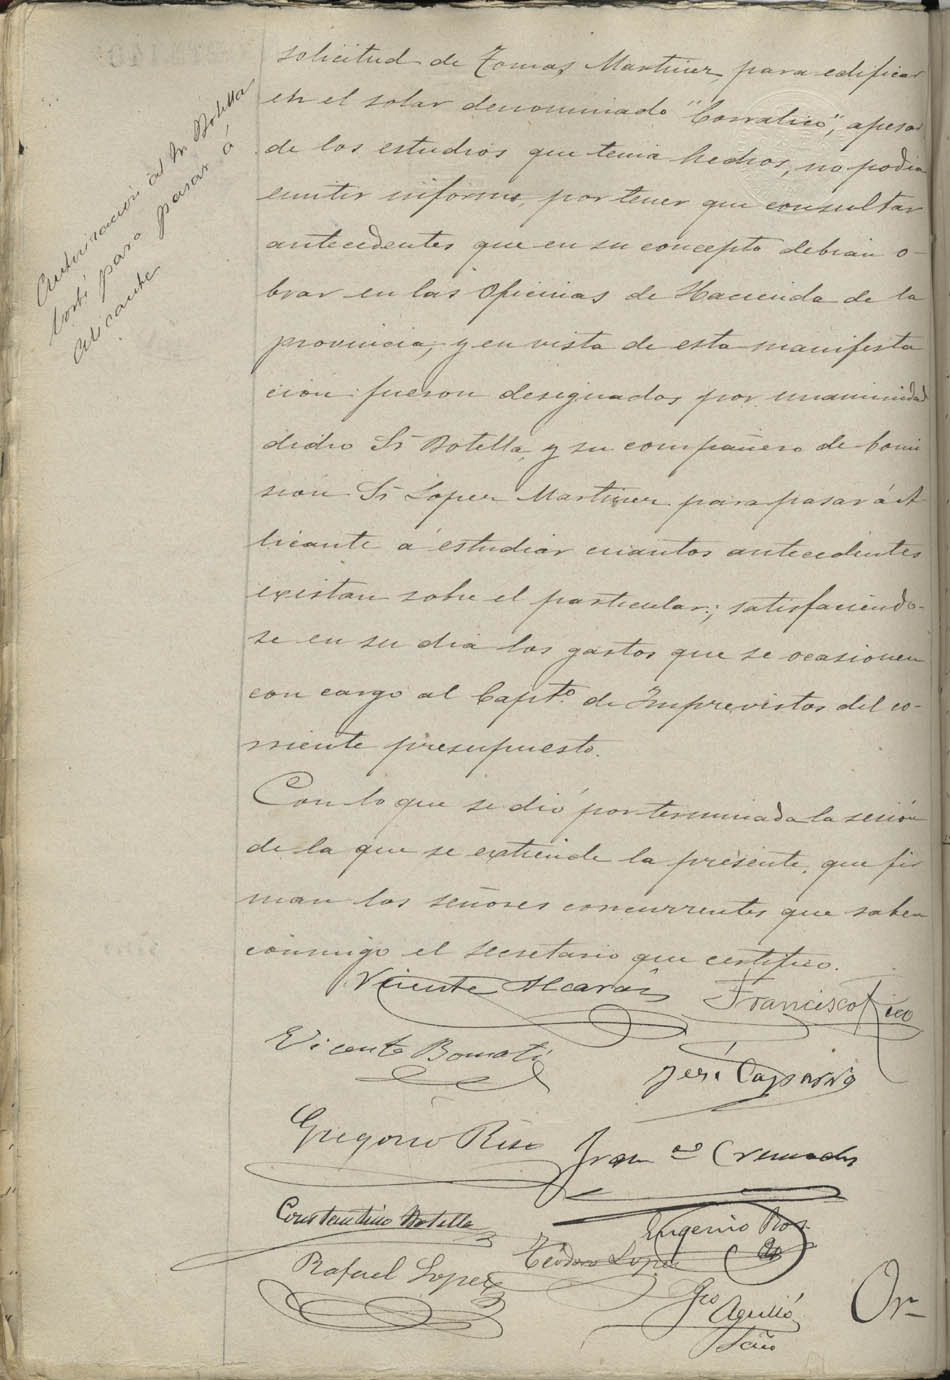 Autorización al Sr. Botella
para pasar á
Alicante
solicitud de Tomas Martinez, para edificar
en el solar denominado "Corralico", apesar
de los estudios que tenia hechos, no podia
emitir informe, por tener que consultar
antecedentes que en su concepto debian o-
brar en las Oficinas de Hacienda de la
provincia; y en vista de esta manifesta
ción fueron designados por unanimidad
dicho Sr Botella, y su compañero de Comi
sión Sr Lopez Martinez para pasar á A-
licante á estudiar cuantos antecedentes
existan sobre el particular; satisfaciendo-
se en su dia los gastos que se ocasionen
con cargo al Capto. de Imprevistos del co-
rriente presupuesto.
Con lo que se dió por terminada la sesión
de la que se extiende la presente, que fir
man los señores concurrentes que saben
conmigo el secretario que certifico.
Vicente Alcaraz Francisco Rico
Vicente Bonmati José
Gregorio Rico Franco Cremades
Constantino Botella Eugenio Ros
Rafael Lopez Teodoro Lopez
Fco Agulló
Srio
Or